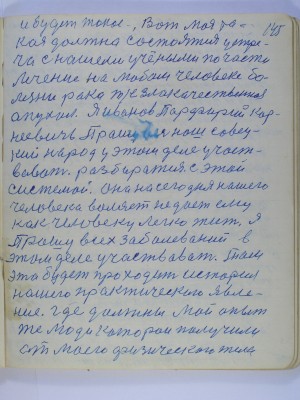 и будет такое., Вот моя та- 145
кая должна состоятся устре-
ча с нашеми учёными по части
Лечение на любом человеке бо-
лезни рака т.е. злокачественная
опухил. Я иванов Парфирий Кор-
неевичь Прашу наш совец-
кий народ у этом деле участ-
вовать. разбиратся с этой
системой. она на сегодея нашего
человека воляет недает ему
как человеку легко жит, я
Прошу всех заболеваний в
этом деле участвават. Там
эта будет проходит история
нашего практического явле-
ние. где должны мой опыт
те люди котораи получили
от моего физического тела